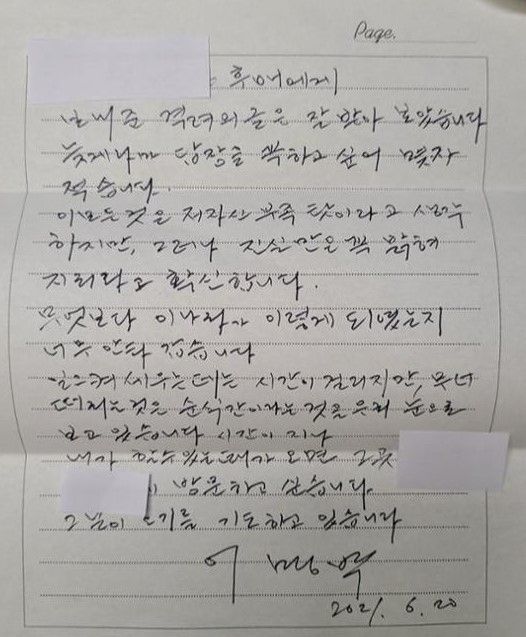 Page.
후배에게
보내준 격려의 글은 잘 받아 보았습니다
늦게나마 답장을 꼭 하고 싶어 몇자
적습니다.
이 모든 것은 저 자신 부족 탓이라고 생각
하지만, 그러나 진실만은 꼭 밝혀
지리라고 확신합니다.
무엇보다 이나라가 이렇게 되였는지
너무 안타 깝습니다
일으켜 세우는데는 시간이 걸리지만, 무너
떠리는것은 순식간이라는것을 우리 눈으로
보고 있습니다 시간이 지나
내가 할수있는때가 오면 그곳
방문하고 싶습니다.
그날이 오기를 기도하고 있습니다
이 명 박
2021. 6. 20